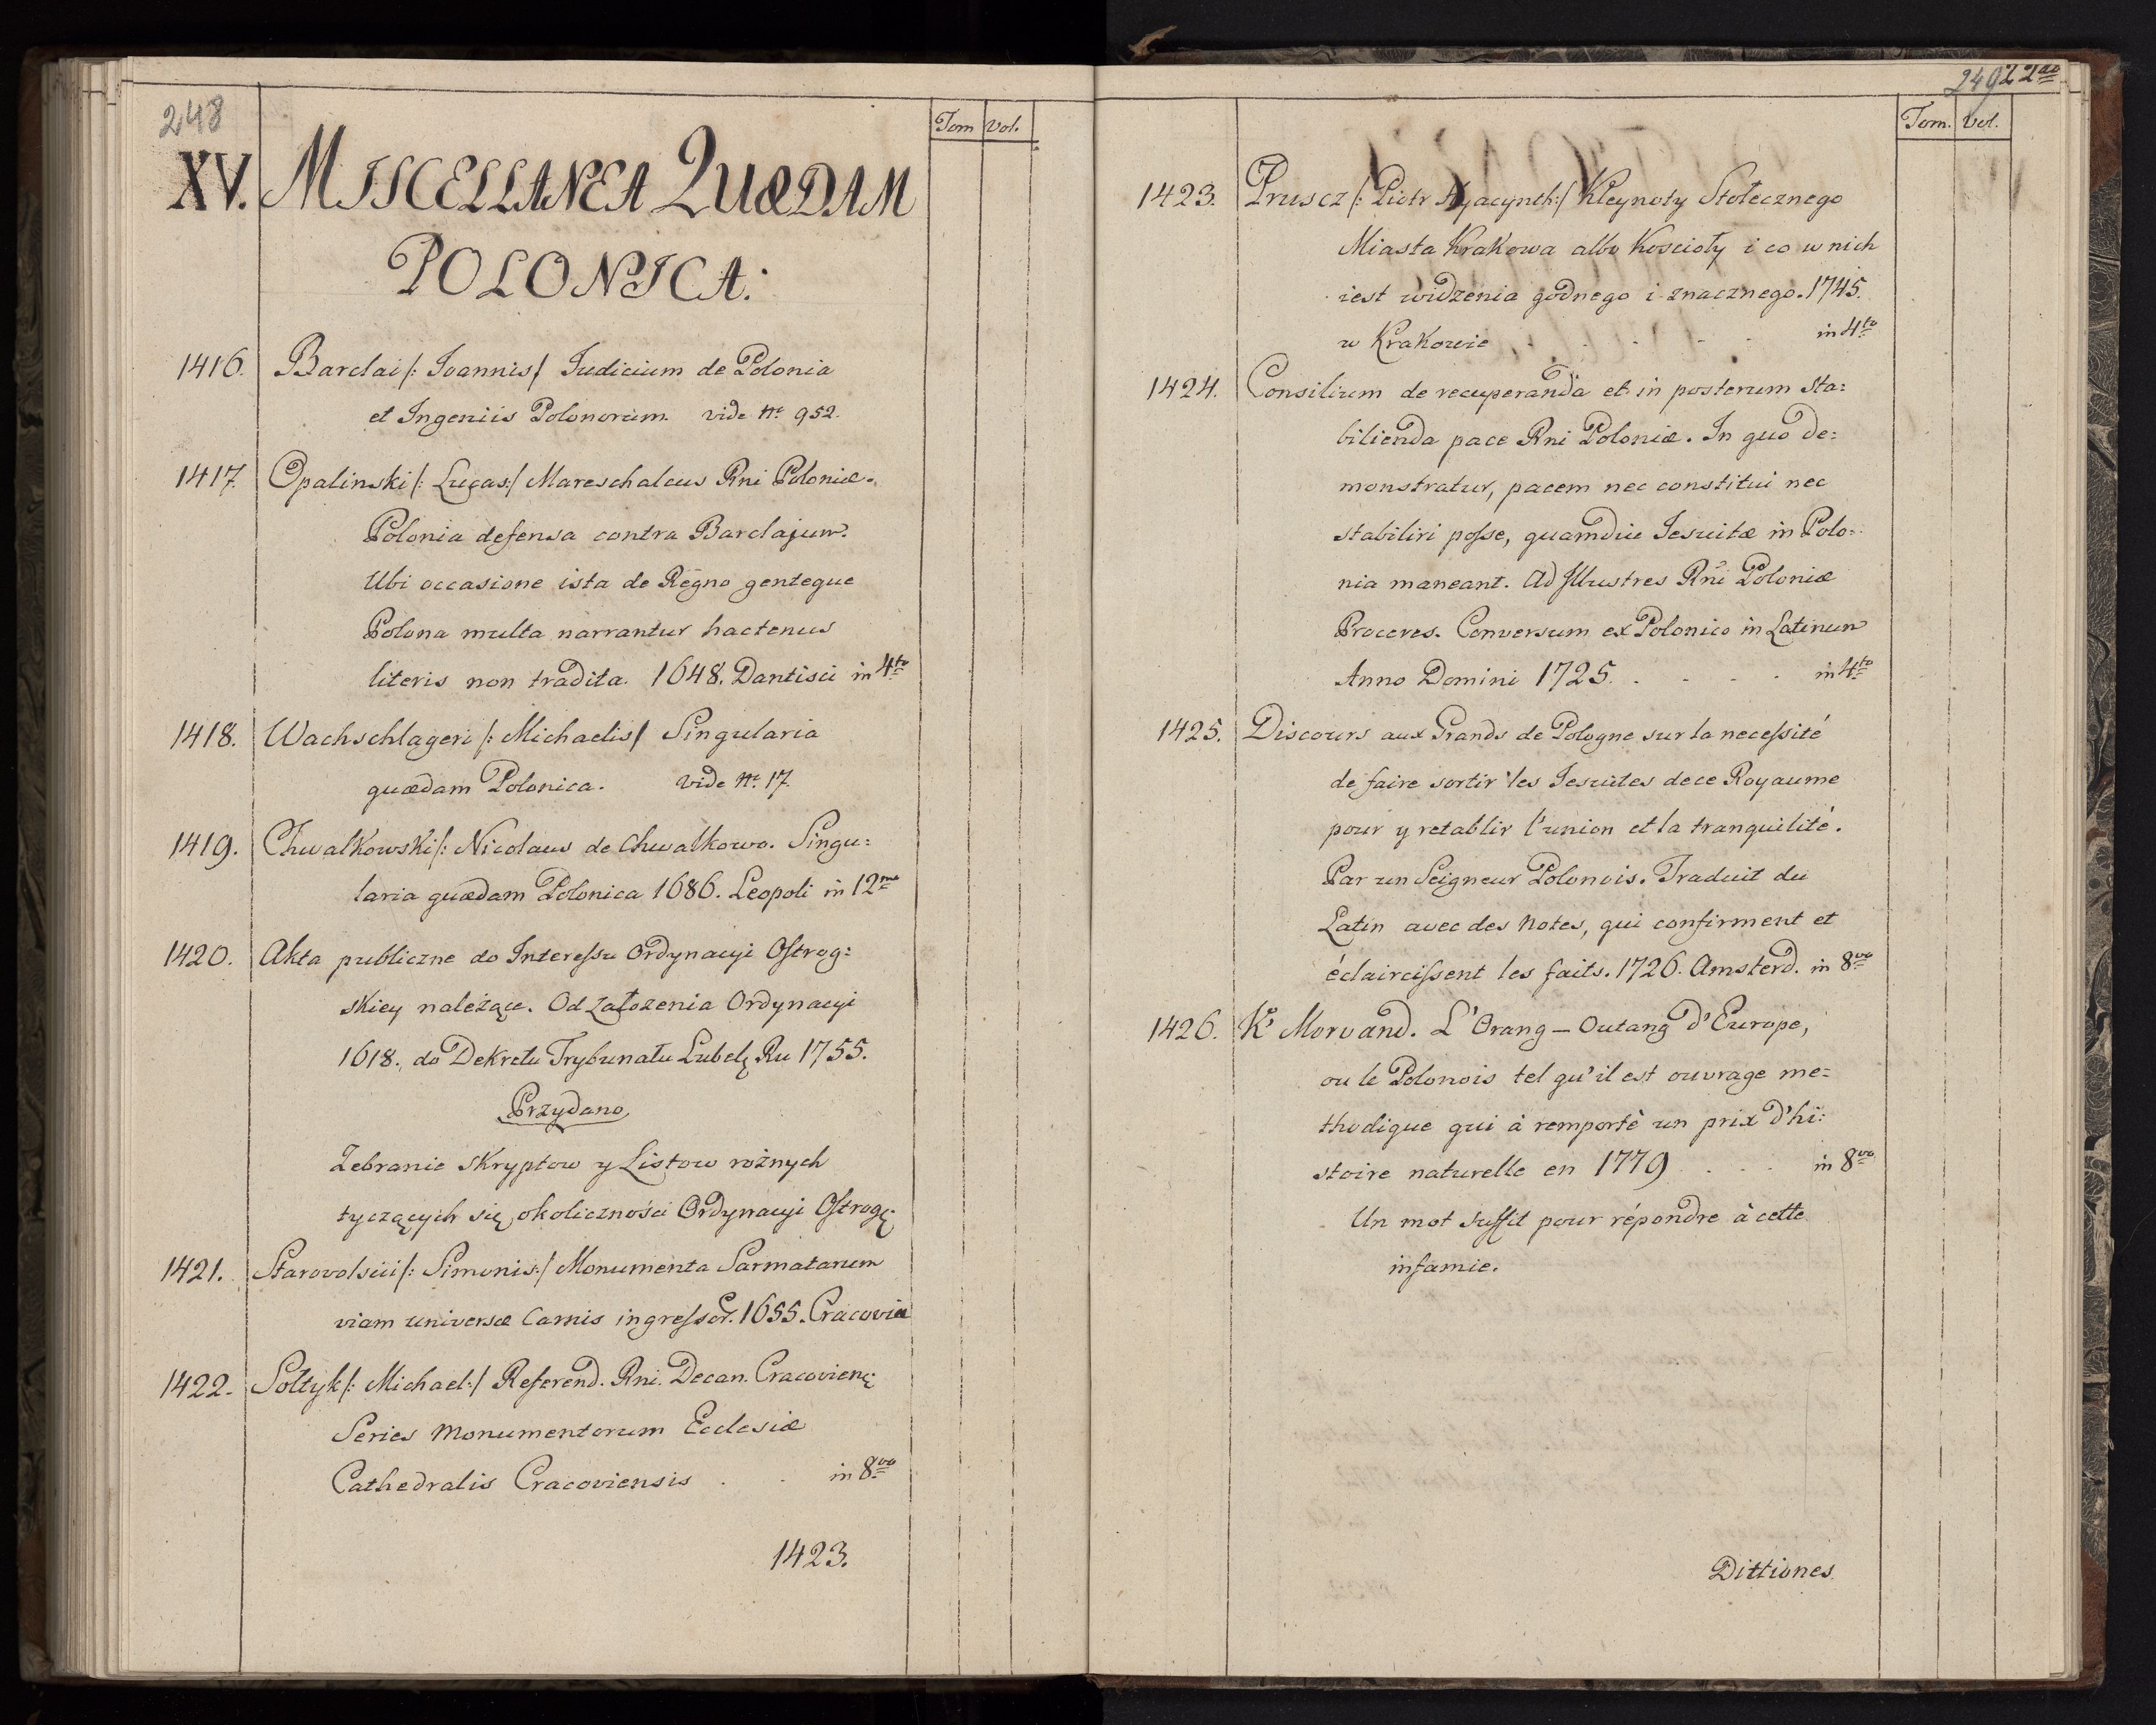 248
Tom Vol.
XV. MISCELLANEA QUÆDAM
POLONICA.
1416. Barclai /: Ioannis / Iudicium de Polonia
et Ingeniis Polonorum. vide Nr. 952.
1417. Opalinski /: Lucas :/ Mareschalcus Rni Poloniæ.
Polonia defensa contra Barclajum.
Ubi occasione ista de Regno genteque
Polona multa narrantur hactenus
literis non tradita. 1648. Dantisci in 4to
1418. Wachschlageri /: Michaelis / Singularia
quædam Polonica. vide Nr. 17.
1419. Chwalkowski /: Nicolaus de Chwalkowo. Singu:
laria quædam Polonica 1686. Leopoli in 12mo
1420. Akta publiczne do Interessu Ordynacyi Ostrog:
skiey należące. Od założenia Ordynacyi
1618. do Dekretu Trybunału Lubel: Ru 1755.
Przydano
Zebranie Skryptow y Listow rożnych
tyczących się okoliczności Ordynacyi Ostrog:
1421. Starovolscii /: Simonis :/ Monumenta Sarmatarum
viam universæ Carnis ingressor. 1655. Cracoviæ
1422. Soltyk /: Michael :/ Referend. Rni. Decan. Cracovien:
Series Monumentorum Ecclesiæ
Cathedralis Cracoviensis . . in 8vo
1423.
249 22do
Tom. Vol.
1423. Pruscz /: Piotr Hyacynth :/ Kleynoty Stołecznego
Miasta Krakowa albo Kościoły i co w nich
iest widzenia godnego i znacznego. 1745.
w Krakowie . . . . in 4to
1424. Consilium de recuperanda et in posterum sta:
bilienda pace Rni Poloniæ. In quo de:
monstratur, pacem nec constitui nec
stabiliri posse, quamdiu Iesuitæ in Polo:
nia maneant. Ad Illustres Rni Poloniæ
Proceres. Conversum ex Polonico in Latinum
Anno Domini 1725. . . . . in 4to
1425. Discours aux Grands de Pologne sur la necessité
de faire sortir les Iesuites de ce Royaume
pour y retablir l'union et la tranquilité.
Par un Seigneur Polonois. Traduit du
Latin avec des Notes, qui confirment et
éclaircissent les faits. 1726. Amsterd. in 8vo
1426. K' Morvand. L'Orang-Outang d'Europe,
ou le Polonois tel qu'il est ouvrage me:
thodique qui à remporté un prix d'hi:
stoire naturelle en 1779 . . . in 8vo
Un mot suffit pour répondre à cette
infamie.
Dittiones